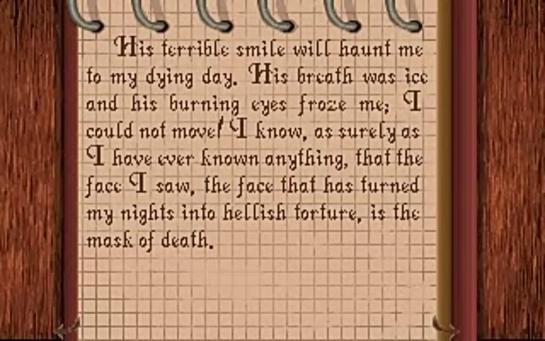 His terrible smile will haunt me
to my dying day. His breath was ice
and his burning eyes froze me; I
could not move! I know, as surely as
I have ever known anything, that the
face I saw, the face that has turned
my nights into hellish torture, is the
mask of death.